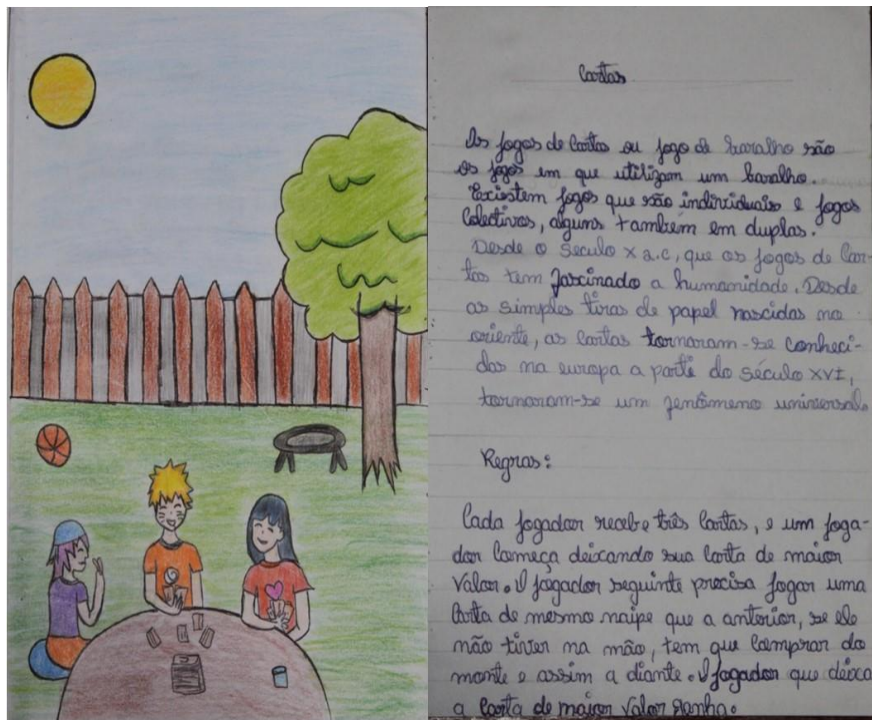 Cartas
Os jogos de Cartas ou jogo de baralho são
os jogos em que utilizam um baralho.
Existem jogos que são individuais e jogos
Colectivos, alguns também em duplas.
Desde o século X a.c, que os jogos de Car-
tas tem fascinado a humanidade. Desde
as simples tiras de papel nascidas no
oriente, as Cartas tornaram-se conheci-
das na europa a parti do século XVI,
tornaram-se um fenômeno universal.
Regras:
Cada jogador recebe três Cartas, e um joga-
dor Começa deixando sua Carta de maior
Valor. O jogador seguinte precisa jogar uma
Carta de mesmo naipe que a anterior, se ele
não tiver na mão, tem que Comprar do
monte e assim a diante. O jogador que deixa
a Carta de maior Valor ganha.